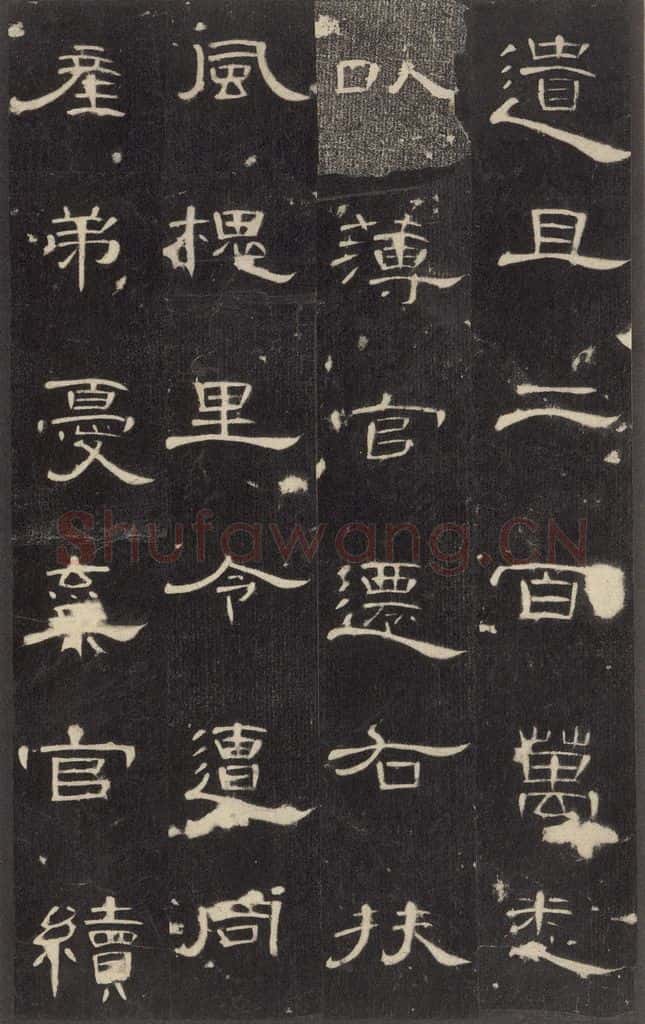 遺且二百萬悉
以薄官遷右扶
風槐里令遭同
產弟憂棄官續
Shufawang.CN